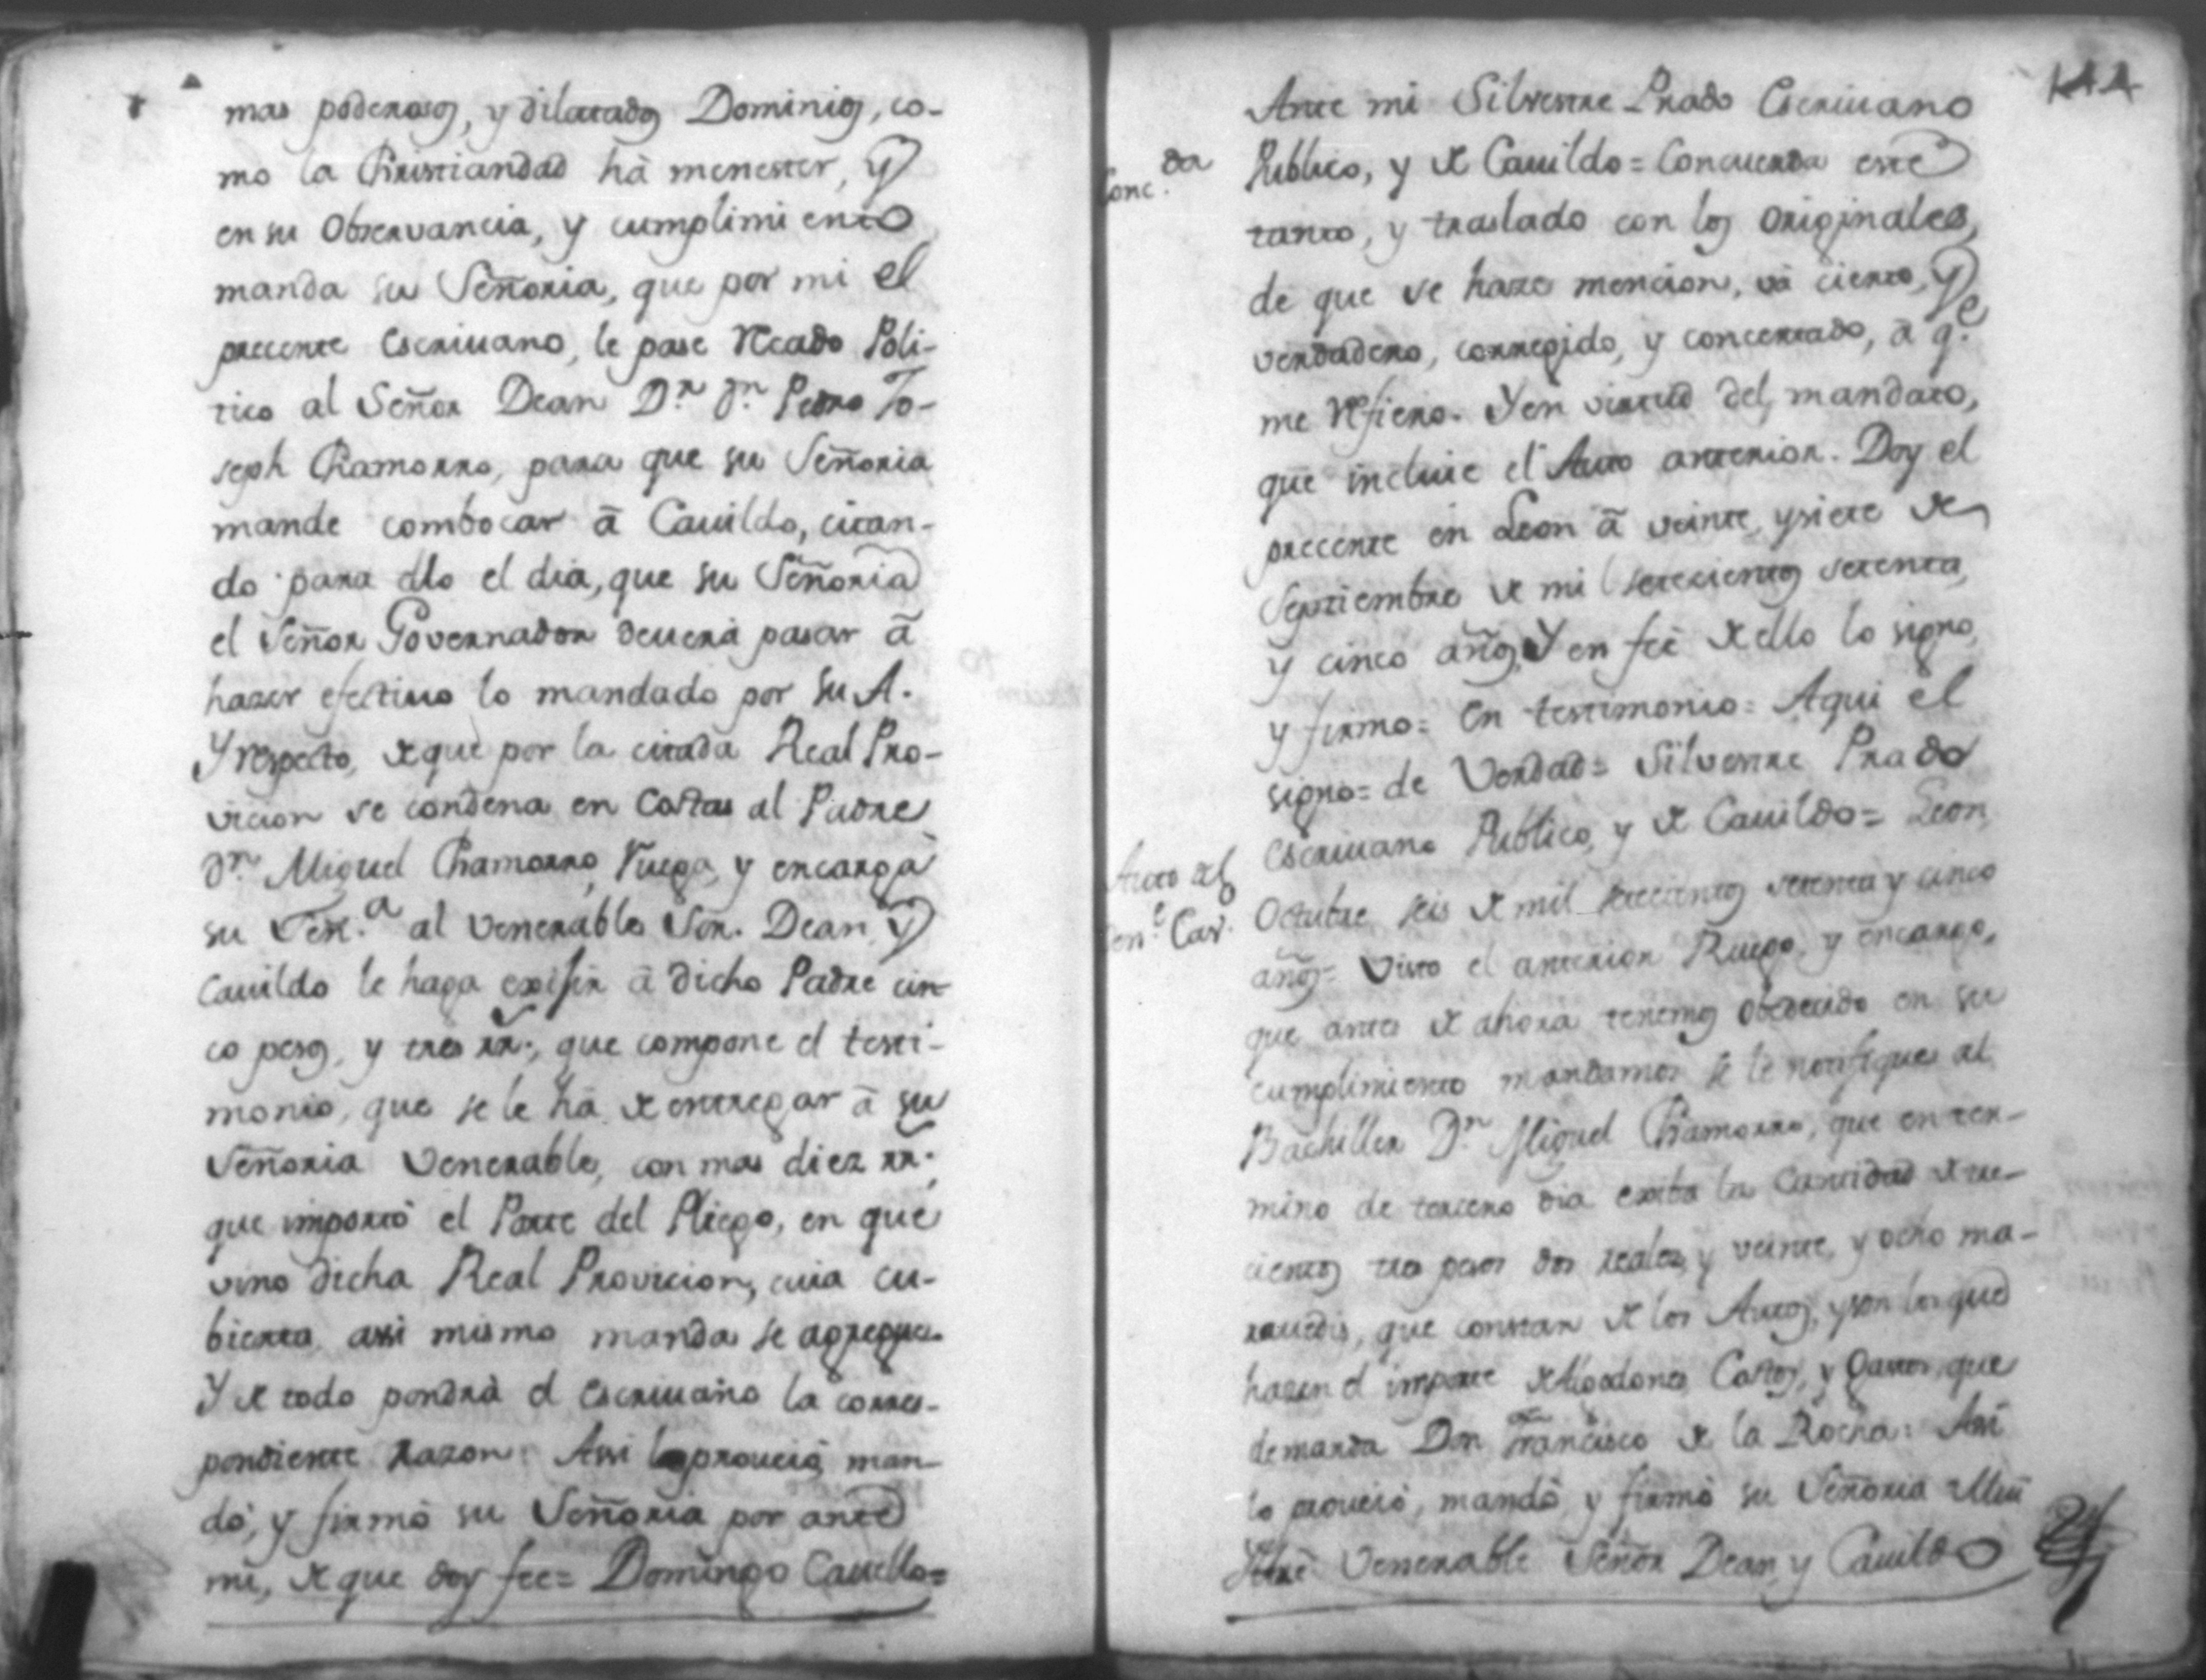 mas poderosos, y dilatados Dominios, co-
mo la Christiandad há menester, y
en su Observancia, y cumplimiento
manda su Señoria, que por mi el
precente Escriuano, le pase Recado Poli-
tico al Señor Dean D.r d.n Pedro Jo-
seph Chamorro, para que su Señoria
mande combocar á Cauildo, citan-
do para ello el dia, que su Señoria
el Señor Governador deuerá pasar á
hazer efectiuo lo mandado por su A.
Y respecto, de que por la citada Real Pro-
vicion se condena en Costas al Padre
d.n Miguel Chamorro, Ruega, y encarga
su Señ.a al Venerable Sor. Dean, y
Cauildo le haga exisir á dicho Padre cin-
co pesos, y tres rr.s, que compone el testi-
monio, que se le há de entregar á su
Señoria Venerable, con mas diez rr.s,
que importó el Parte del Pliego, en que
vino dicha Real Provicion, cuia cu-
bierta assi mismo manda se agregue.
Y de todo pondrá el Escriuano la corres-
pondiente razon: Assi lo proueió, man-
dó, y firmó su Señoria por ante
mi, de que doy fee= Domingo Cauello=
144
Ante mi Silvestre Prado Escriuano
Conc.da
Publico, y de Cauildo= Concuerda este
tanto, y traslado con los originales,
de que se haze mencion, vá cierto, y
verdadero, corregido, y concertado, á q.e
me refiero. Y en virtud del mandato,
que incluie el Auto anterior. Doy el
precente en Leon á veinte, y siete de
Septiembre de mil setecientos setenta,
y cinco años, Y en feé de ello lo signo,
y firmo= En testimonio= Aqui el
signo= de Verdad= Silvestre Prado
Escriuano Publico, y de Cauildo= Leon,
Auto del
Ven.e Cav.o
Octubre seis de mil setecientos setenta y cinco
años= Visto el anterior Ruego, y encargo,
que antes de ahora tenemos obedecido en su
cumplimiento mandamos se le notifique al
Bachiller D.n Miguel Chamorro, que en ter-
mino de tercero dia exiba la Cantidad de tre-
cientos tres pesos dos reales, y veinte, y ocho ma-
rauedis, que constan de los Autos, y son los que
hazen el importe de Algodones, Costos, y Gastos, que
demanda Don Francisco de la Rocha: Assi
lo proueió, mandó, y firmó su Señoria Mui
Iltre Venerable Señor Dean, y Cauildo